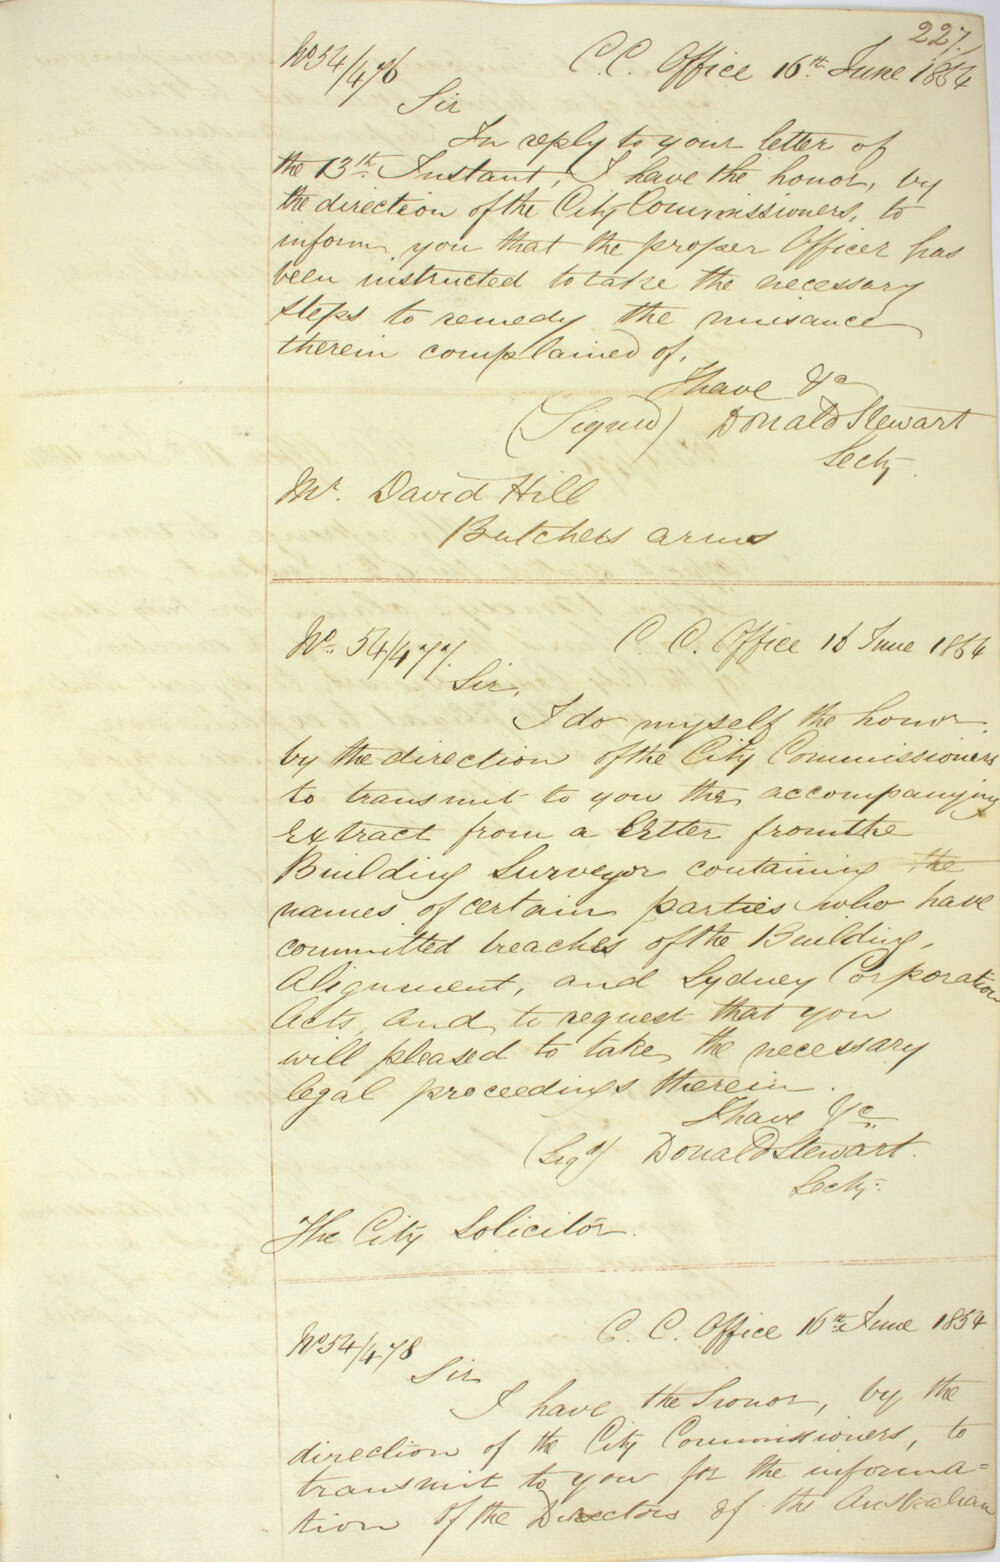 227.
No 54/476 C. C. Office 16th June 1854
Sir
In reply to your letter of
the 13th Instant, I have the honor, by
the direction of the City Commissioners, to
inform you that the proper Officer has
been instructed to take the necessary
steps to remedy the nuisance
therein complained of.
I have &c
(Signed) Donald Stewart
Secty.
Mr. David Hill
Butchers arms
No. 54/477. C. C. Office 16 June 1854
Sir,
I do myself the honor
by the direction of the City Commissioners
to transmit to you the accompanying
Extract from a letter from the
Building Surveyor containing the
names of certain parties who have
committed breaches of the Building,
Alignment, and Sydney Corporation
Acts, and to request that you
will pleased to take the necessary
legal proceedings therein.
I have &c.
(Sigd) Donald Stewart.
Secty.
The City Solicitor.
No 54/478 C. C. Office 16th June 1854
Sir
I have the honor, by the
direction of the City Commissioners, to
transmit to you for the informa=
tion of the Directors of the Australian